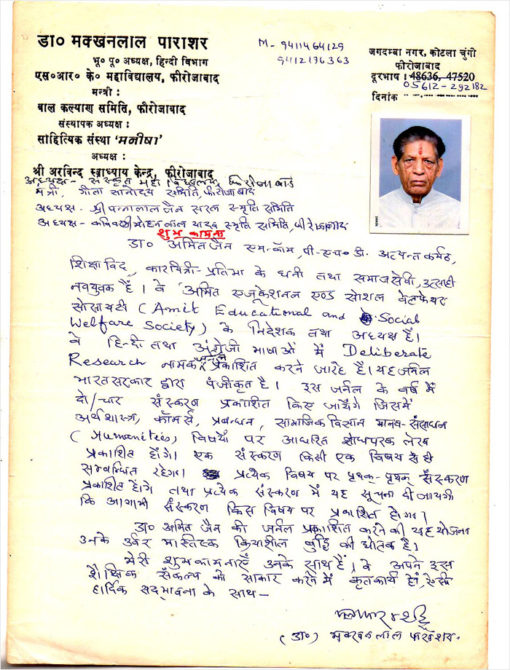 डा० मक्खनलाल पाराशर
भू० पू० अध्यक्ष, हिन्दी विभाग
एस०आर० के० महाविद्यालय, फीरोजाबाद
मन्त्री :
बाल कल्याण समिति, फीरोजाबाद
संस्थापक अध्यक्ष :
साहित्यिक संस्था 'मनीषा'
अध्यक्ष :
श्री अरविन्द स्वाध्याय केन्द्र, फीरोजाबाद
M- 9411464129
9412136363
जगदम्बा नगर, कोटला चुंगी
फीरोजाबाद
दूरभाष : 48636, 47520
05612-292182
दिनांक
अध्यक्ष- संस्कृत महाविद्यालय, फिरोजाबाद
मंत्री, गीता ज्ञानोदय समिति, फीरोजाबाद
अध्यक्ष- श्री पन्नालाल जैन सरल स्मृति समिति
अध्यक्ष- कविवर मोहनलाल यादव स्मृति समिति, फीरोजाबाद
शुभ कामना
डा० अमित जैन एम.कॉम, पी-एच० डी० अत्यन्त कर्मठ,
शिक्षाविद्, कारयित्री-प्रतिभा के धनी तथा समाजसेवी, उत्साही
नवयुवक हैं। वे 'अमित एजूकेशनल एण्ड सोशल वेलफेयर
सोसायटी (Amit Educational and Social
Welfare Society) के निदेशक तथा अध्यक्ष हैं।
वे हिन्दी तथा अंग्रेजी भाषाओं में Deliberate
Research नामक जर्नल प्रकाशित करने जा रहे हैं। यह जर्नल
भारत सरकार द्वारा पंजीकृत है। इस जर्नल के वर्ष में
दो/चार संस्करण प्रकाशित किए जायेंगे जिसमें
अर्थशास्त्र, कॉमर्स, प्रबन्धन, सामाजिक विज्ञान मानव-संसाधन
(Humanities) विषयों पर आधारित शोधपरक लेख
प्रकाशित होंगे। एक संस्करण किसी एक विषय से ही
सम्बन्धित रहेगा। प्रत्येक विषय पर पृथक्-पृथक् संस्करण
प्रकाशित होंगे तथा प्रत्येक संस्करण में यह सूचना दी जायगी
कि आगामी संस्करण किस विषय पर प्रकाशित होगा।
डा० अमित जैन की जर्नल प्रकाशित करने की यह योजना
उनके उर्वर मस्तिष्क क्रियाशील बुद्धि की द्योतक है।
मेरी शुभकामनाएँ उनके साथ हैं, वे अपने इस
शैक्षिक संकल्प को साकार करने में कृतकार्य हों, ऐसी
हार्दिक सद्भावना के साथ—
(डा०) मक्खनलाल पाराशर